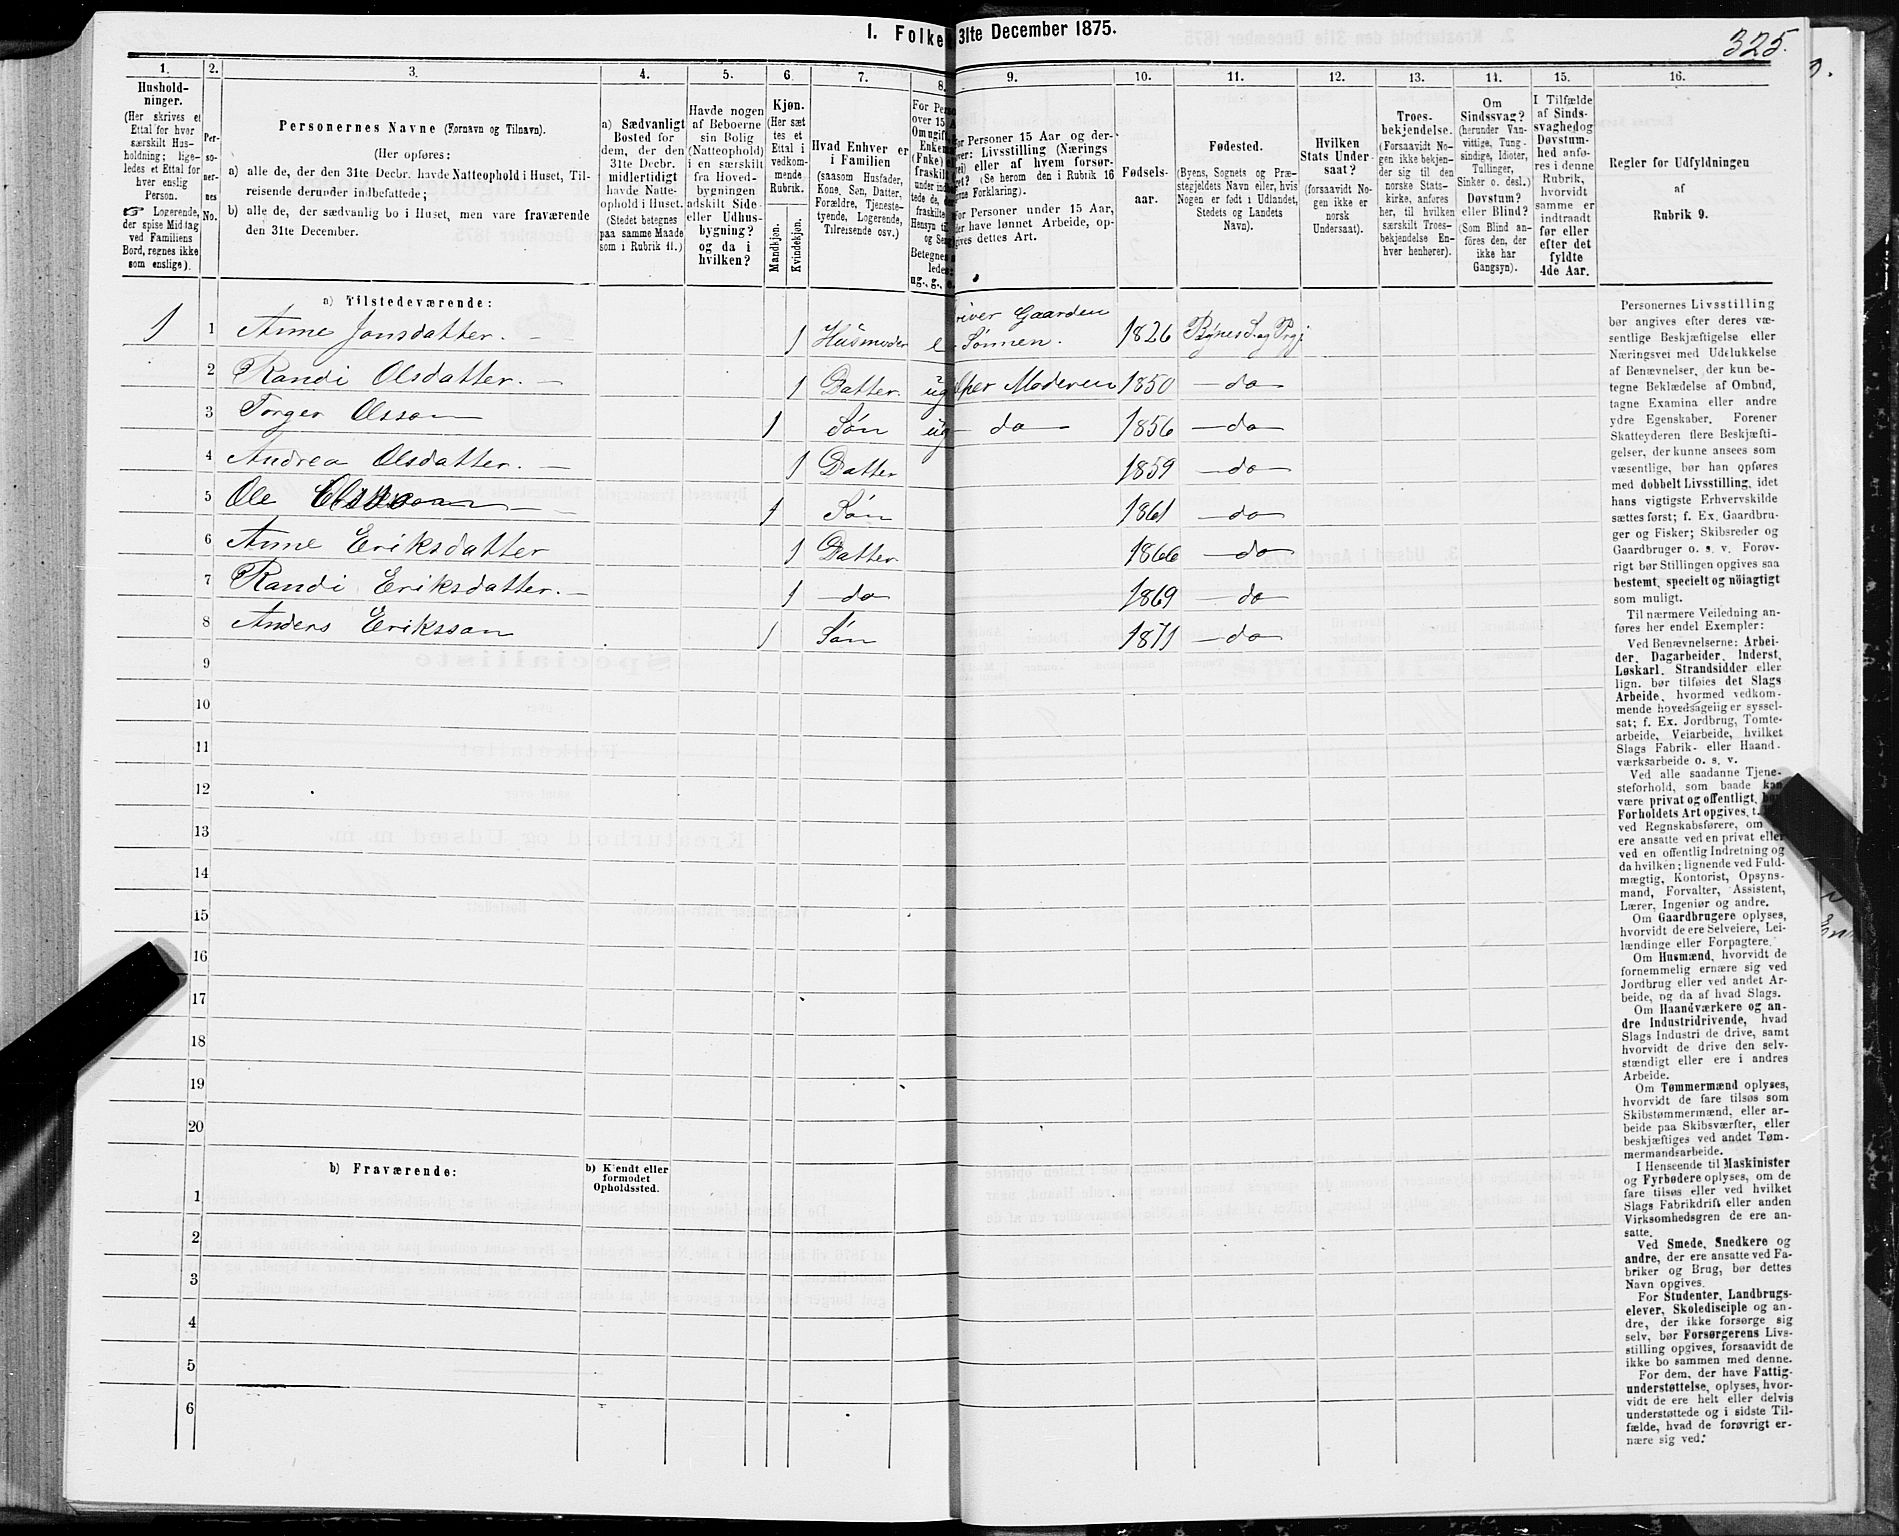 1. Folke 31te December 1875.
325.
1. 2. 3. 4. 5. 6. 7. 8. 9. 10. 11. 12. 13. 14. 15. 16.
Hushold-
ninger.
(Her skrives et
Ettal for hver
særskilt Hus-
holdning; lige-
ledes et Ettal for
hver enslig
Person.
☞ Logerende,
der spise Middag
ved Familiens
Bord, regnes ikke
som enslige).
Per-
so-
ner-
nes
No.
Personernes Navne (Fornavn og Tilnavn).
(Her opføres:
a) alle de, der den 31te Decbr. havde Natteophold i Huset, Til-
reisende derunder indbefattede;
b) alle de, der sædvanlig bo i Huset, men vare fraværende
den 31te December.
a) Sædvanligt
Bosted for
dem, der den
31te Decbr.
midlertidigt
havde Natte-
ophold i Huset.
(Stedet betegnes
paa samme Maade
som i Rubrik 11.)
Havde nogen
af Beboerne
sin Bolig
(Natteophold)
i en særskilt
fra Hoved-
bygningen
adskilt Side-
eller Udhus-
bygning?
og da i
hvilken?
Kjøn.
(Her sæt
tes et
Ettal i
vedkom-
mende
Rubrik.
Mandkjøn.
Kvindekjøn.
Hvad Enhver er
i Familien
(saasom Husfader,
Kone, Søn, Datter,
Forældre, Tjeneste-
tyende, Logerende,
Tilreisende osv.)
For Perso
over 15 A
Om ugift,
Enkem
(Enke) el
fraskilt
under indb
tede de,
fraskilte
Hensyn til
og Sen
Betegnes
ledes:
ug., g., e.
For Personer 15 Aar og der-
over: Livsstilling (Nærings
vei) eller af hvem forsør-
get? (Se herom den i Rubrik 16
givne Forklaring).
For Personer under 15 Aar,
der have lønnet Arbeide, op-
gives dettes Art.
Fødsels-
aar.
Fødested.
(Byens, Sognets og Præ-
stegjeldets Navn eller, hvis
Nogen er født i Udlandet,
Stedets og Landets
Navn).
Hvilken
Stats Under-
saat?
(forsaavidt No-
gen ikke er
norsk
Undersaat).
Troes-
bekjendelse.
(Forsaavidt No-
gen ikke bekjen-
der sig til den
norske Stats-
kirke, anføres
her, til hvilken
særskilt Troes-
bekjendelse En-
hver henhører).
Om
Sindssvag?
(herunder Van-
vittige, Tung-
sindige, Idioter,
Tullinger,
Sinker o. desl.)
Døvstum?
eller Blind?
(Som Blind an-
føres den, der
ikke har
Gangsyn).
I Tilfælde
af Sinds-
svaghed og
Døvstum-
hed anfø-
res i denne
Rubrik,
hvorvidt
samme er
indtraadt
før eller
efter det
fyldte
4de Aar.
Regler for Udfyldningen
af
Rubrik 9.
a) Tilstedeværende:
1 1 Anne Jonsdatter. 1 Husmoder e river Gaarden
Sønnen. 1826 Bynes S. og Prgj
2 Randi Olsdatter. 1 Datter. ug Moderen 1850 do
3 Torger Olsson 1 Søn ug do 1856 do
4 Andrea Olsdatter. 1 Datter 1859 do
5 Ole 1 Søn 1861 do
6 Anne Eriksdatter 1 Datter 1866 do
7 Randi Eriksdatter. 1 do 1869 do
8 Anders Eriksson 1 Søn 1871 do
9
10
11
12
13
14
15
16
17
18
19
20
b) Fraværende:
b) Kjendt eller
formodet
Opholdssted.
1
2
3
4
5
6
Personernes Livsstilling
bør angives efter deres væ-
sentlige Beskjæftigelse eller
Næringsvei med Udelukkelse
af Benævnelser, der kun be-
tegne Beklædelse af Ombud,
tagne Examina eller andre
ydre Egenskaber. Forener
Skatteyderen flere Beskjæfti-
gelser, der kunne ansees som
væsentlige, bør han opføres
med dobbelt Livsstilling, idet
hans vigtigste Erhvervskilde
sættes først; f. Ex. Gaardbru-
ger og Fisker; Skibsreder og
Gaardbruger o. s. v. Forøv-
rigt bør Stillingen opgives saa
bestemt, specielt og nöiagtigt
som muligt.
Til nærmere Veiledning an-
føres her endel Exempler:
Ved Benævnelserne: Arbei-
der, Dagarbeider, Inderst,
Løskarl, Strandsidder eller
lign. bør tilføies det Slags
Arbeide, hvormed vedkom-
mende hovedsagelig er syssel-
sat; f. Ex. Jordbrug, Tomte-
arbeide, Veiarbeide, hvilket
Slags Fabrik- eller Haand-
værksarbeide o. s. v.
Ved alle saadanne Tjene-
steforhold, som baade kan
være privat og offentligt, bør
Forholdets Art opgives, t.
ved Regnskabsførere, om
ere ansatte ved en privat eller
ved en offentlig Indretning og
da hvilken; lignende ved Fuld-
mægtig, Kontorist, Opsyns-
mand, Forvalter, Assistent,
Lærer, Ingeniør og andre.
Om Gaardbrugere oplyses,
hvorvidt de ere Selveiere, Lei-
lændinge eller Forpagtere.
Om Husmænd, hvorvidt de
fornemmelig ernære sig ved
Jordbrug eller ved andet Ar-
beide, og da af hvad Slags.
Om Haandværkere og an-
dre Industridrivende, hvad
Slags Industri de drive, samt
hvorvidt de drive den selv-
stændigt eller ere i andres
Arbeide.
Om Tømmermænd oplyses,
hvorvidt de fare tilsøs som
Skibstømmermænd, eller ar-
beide paa Skibsværfter, eller
beskjæftiges ved andet Tøm-
mermandsarbeide.
I Henseende til Maskinister
og Fyrbødere oplyses, om de
fare tilsøs eller ved hvilket
Slags Fabrikdrift eller anden
Virksomhedsgren de ere an-
satte.
Ved Smede, Snedkere og
andre, der ere ansatte ved Fa-
briker og Brug, bør dettes
Navn opgives.
For Studenter, Landbrugs-
elever, Skoledisciple og an-
dre, der ikke forsørge sig
selv, bør Forsørgerens Livs-
stilling opgives, forsaavidt de
ikke bo sammen med denne.
For dem, der have Fattig-
understøttelse, oplyses, hvor-
vidt de ere helt eller delvis
understøttede og i sidste Til-
fælde, hvad de forøvrigt er-
nære sig ved.